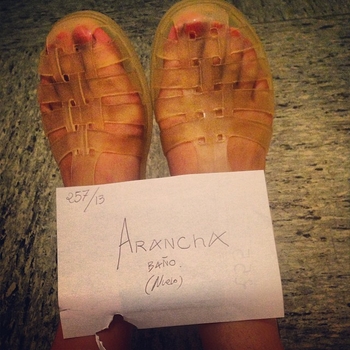 257/13
ARANCHA
BAÑO
(Nuevo)